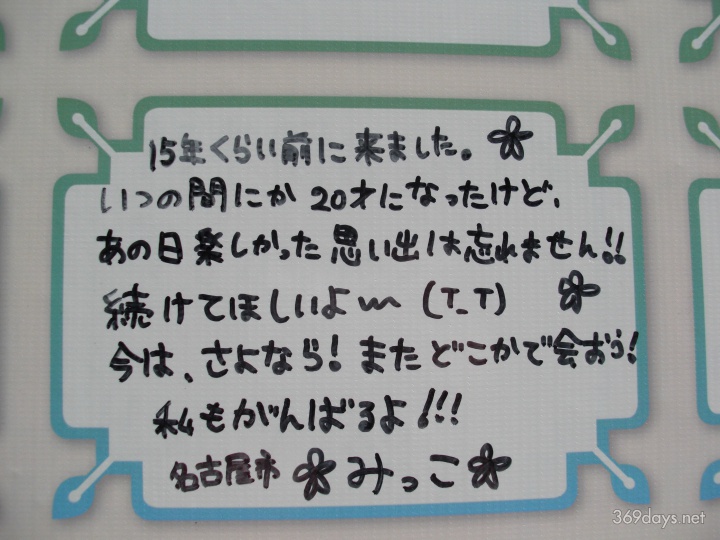 15年くらい前に来ました。
いつの間にか20才になったけど、
あの日楽しかった思い出は忘れません!!
続けてほしいよ〜 (T_T)
今は、さよなら!またどこかで会おう!
私もがんばるよ!!!
名古屋市 みっこ
369days.net